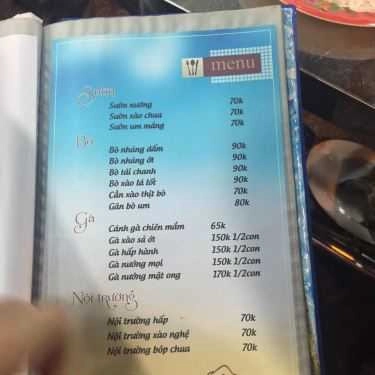 menu
Sườn
Sườn nướng 70k
Sườn xào chua 70k
Sườn um măng 70k
Bò
Bò nhúng dấm 90k
Bò nhúng ớt 90k
Bò tái chanh 90k
Bò xào lá lốt 90k
Cần xào thịt bò 70k
Gân bò um 80k
Gà
Cánh gà chiên mắm 65k
Gà xào sả ớt 150k 1/2con
Gà hấp hành 150k 1/2con
Gà nướng mọi 150k 1/2con
Gà nướng mật ong 170k 1/2con
Nội trường
Nội trường hấp 70k
Nội trường xào nghệ 70k
Nội trường bóp chua 70k